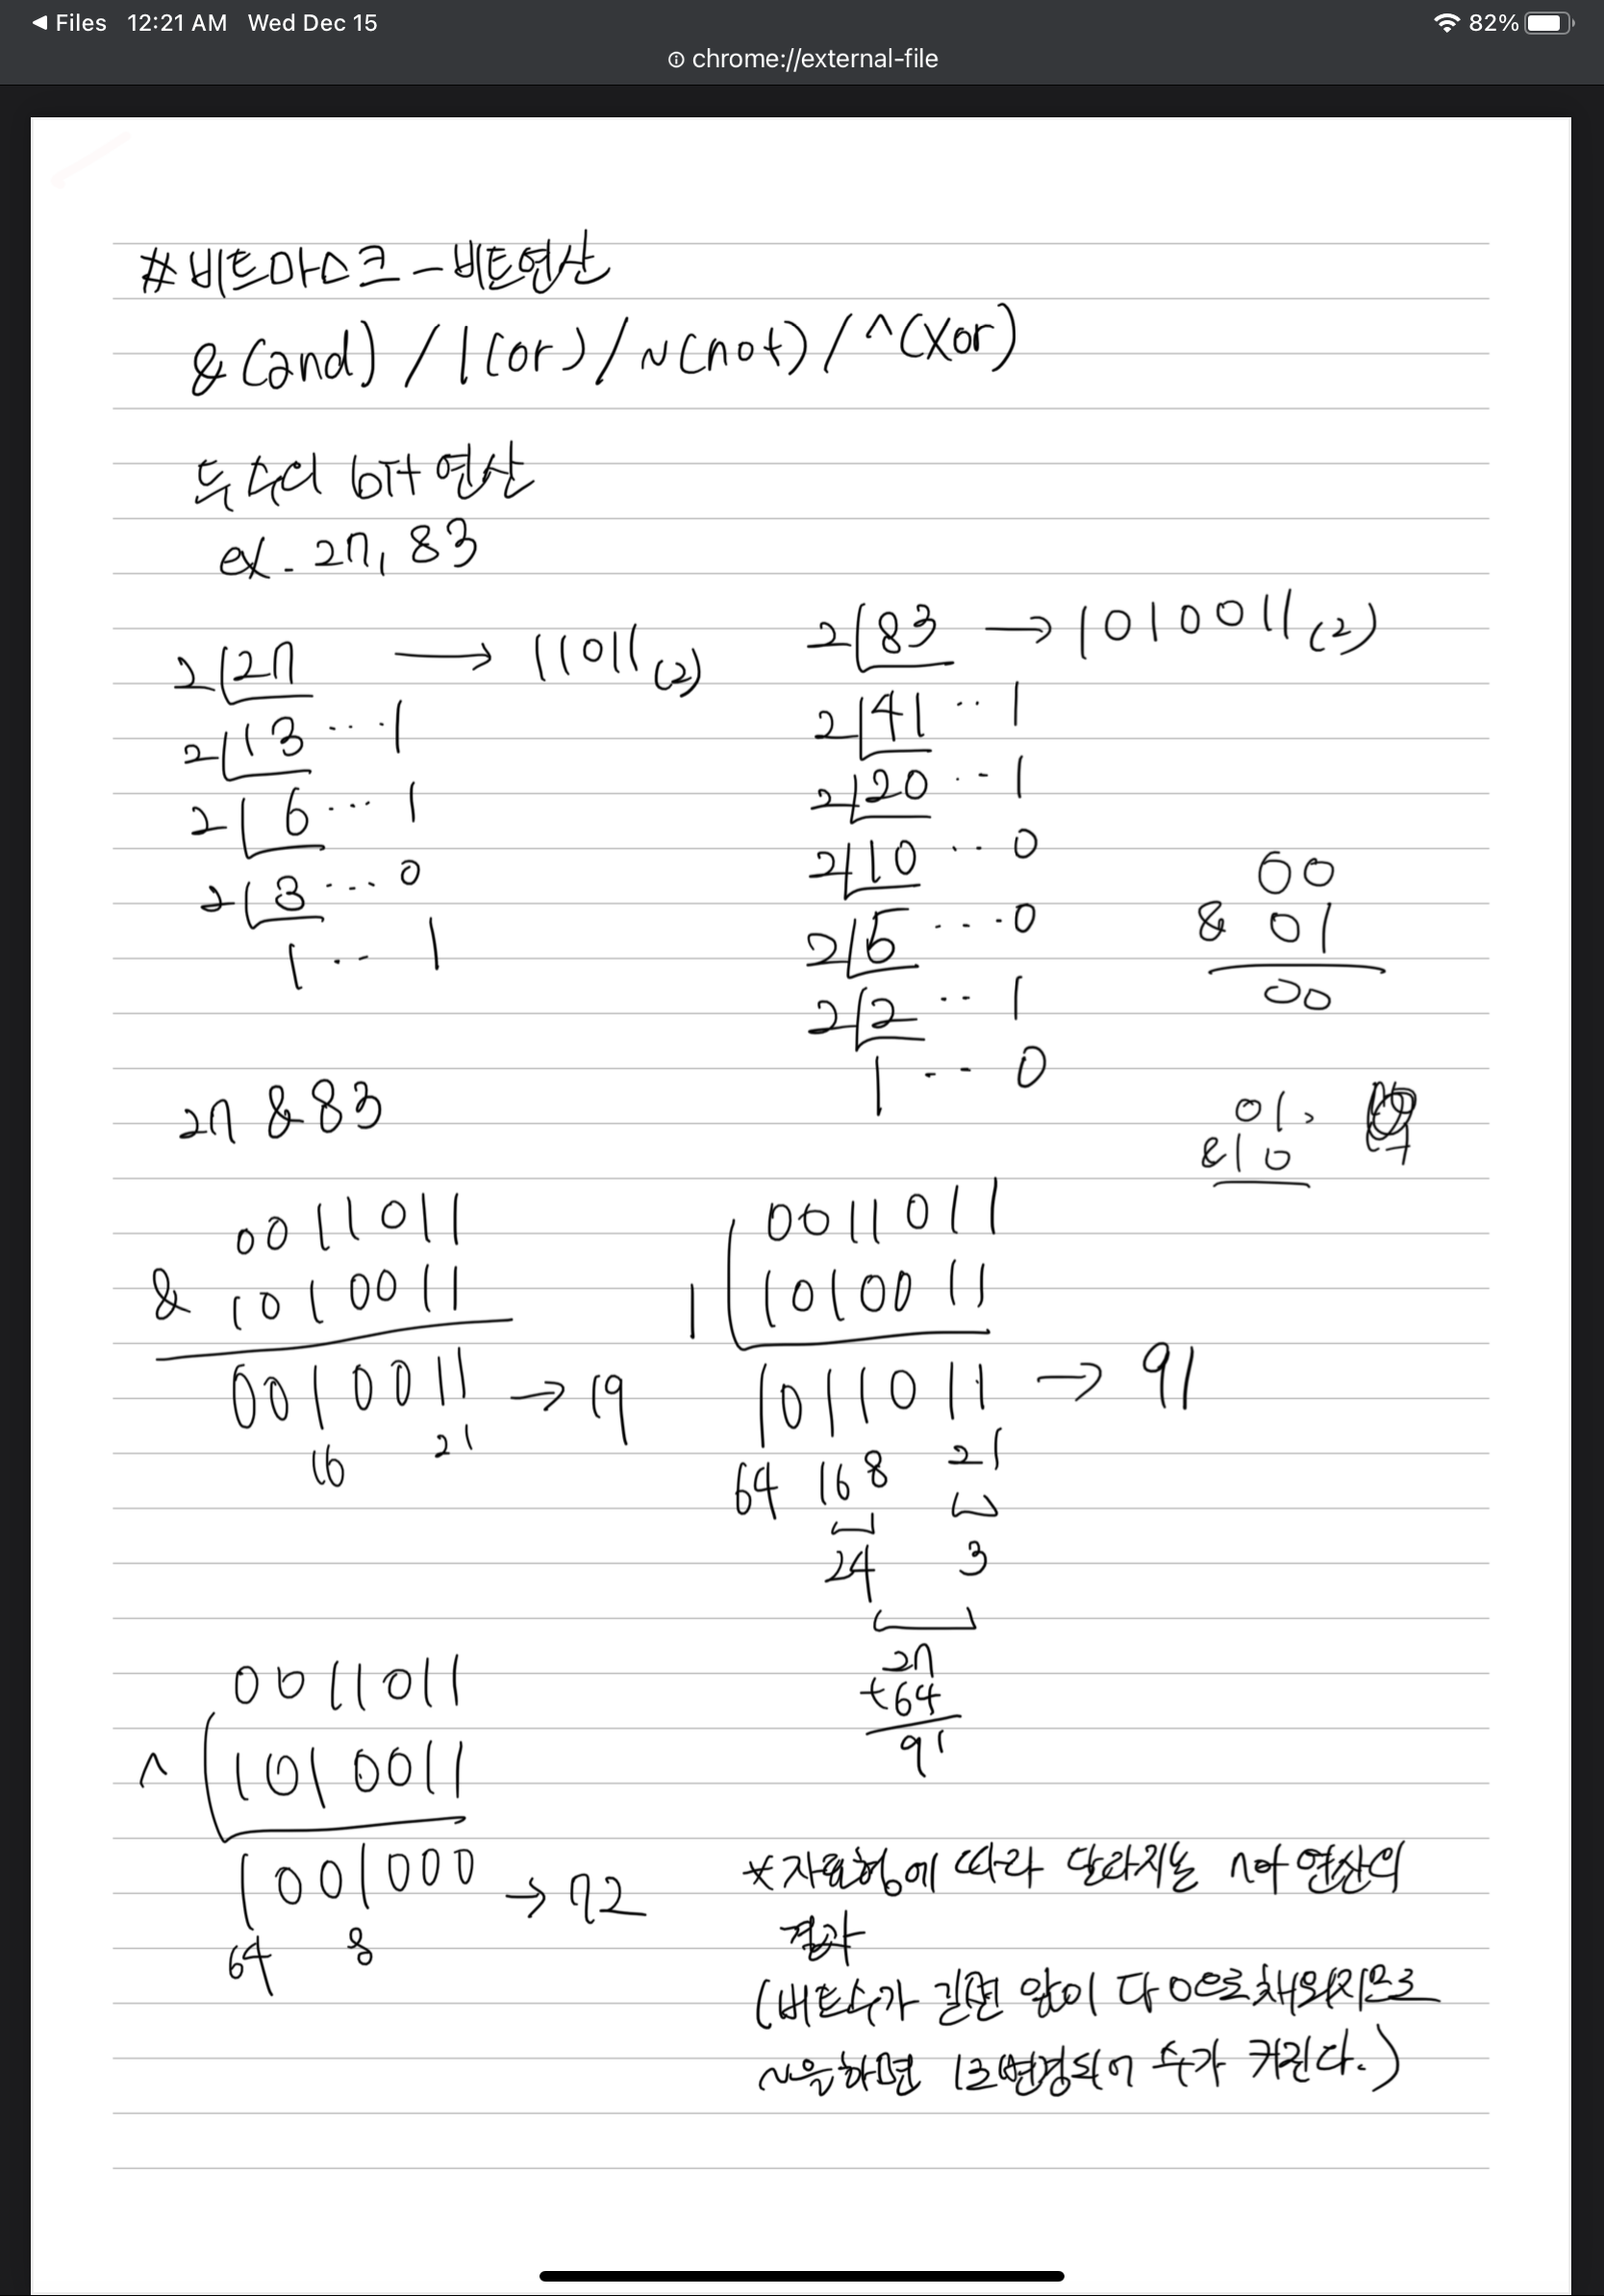 ◀ Files 12:21 AM Wed Dec 15 82%
chrome://external-file
#비트마스크 - 비트연산
&(and) / |(or) / ~(not) / ^(xor)
두 수의 bit 연산
ex. 27, 83
2 27 → 11011(2)
2 13 ... 1
2 6 ... 1
2 3 ... 0
1 ... 1
2 83 → 1010011(2)
2 41 .. 1
2 20 ... 1
2 10 ... 0
2 5 ... 0
2 2 ... 1
1 ... 0
00
& 01
00
01
&10
27 & 83
0011011
& 1010011
0010011 → 19
16 21
0011011
| 1010011
1011011 → 91
64 16 8 21
24 3
27
+64
91
0011011
^ 1010011
1001000 → 72
64 8
*자료형에 따라 달라지는 not 연산의
결과
(비트수가 길면 앞이 다 0으로 채워지므로
~을 하면 1로 변경되어 수가 커진다.)